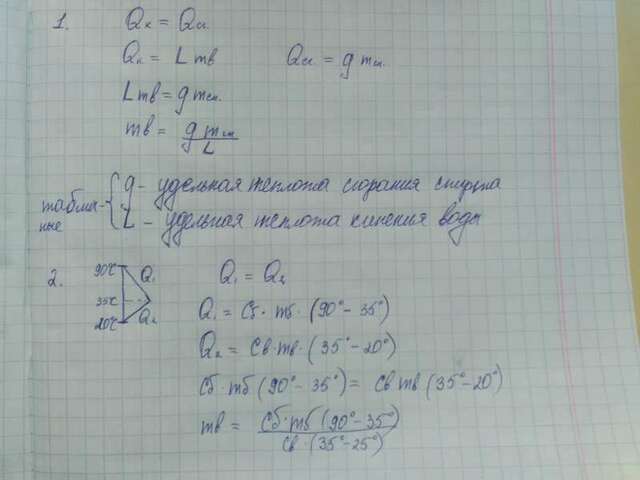 1. Qк = Qсп.
Qк = L mв     Qсп = q mсп.
L mв = q mсп.
mв = q mсп / L
таблич- { q - удельная теплота сгорания спирта
ные { L - удельная теплота кипения воды
2. 90°C Q₁ Q₁ = Q₂
35°C Q₁ = Cб · mб · (90° - 35°)
20°C Q₂ Q₂ = Cв · mв · (35° - 20°)
Cб · mб (90° - 35°) = Cв mв (35° - 20°)
mв = Cб · mб (90° - 35°) / Cв · (35° - 25°)